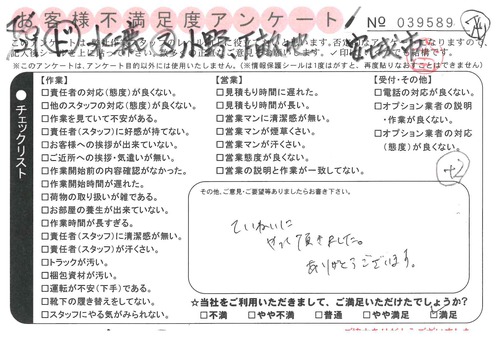 お客様不満足度アンケート
No 039589
※このアンケートは、アンケート目的以外には使用いたしません。(※情報保護シールは1度はがすと、再度貼りなおすことはできません)
チェックリスト
【作業】
□責任者の対応(態度)が良くない。
□他のスタッフの対応(態度)が良くない。
□作業を見ていて不安がある。
□責任者(スタッフ)に好感が持てない。
□お客様への挨拶が出来ていない。
□ご近所への挨拶・気遣いが無い。
□作業開始前の内容確認がなかった。
□作業開始時間が遅れた。
□荷物の取り扱いが雑である。
□お部屋の養生が出来ていない。
□作業時間が長すぎる。
□責任者(スタッフ)に清潔感が無い。
□責任者(スタッフ)が汗くさい。
□トラックが汚い。
□梱包資材が汚い。
□運転が不安(下手)である。
□靴下の履き替えをしてない。
□スタッフにやる気がみられない。
【営業】
□見積もり時間に遅れた。
□見積もり時間が長い。
□営業マンに清潔感が無い。
□営業マンが煙草くさい。
□営業マンが汗くさい。
□営業態度が良くない。
□営業の説明と作業が一致してない。
【受付・その他】
□電話の対応が良くない。
□オプション業者の説明・作業が良くない。
□オプション業者の対応(態度)が良くない。
その他、ご意見・ご要望等ありましたらお書き下さい。
ていねいに
やって頂きました。
ありがとうございます。
☆当社をご利用いただきまして、ご満足いただけたでしょうか?
□不満 □やや不満 □普通 □やや満足 □満足